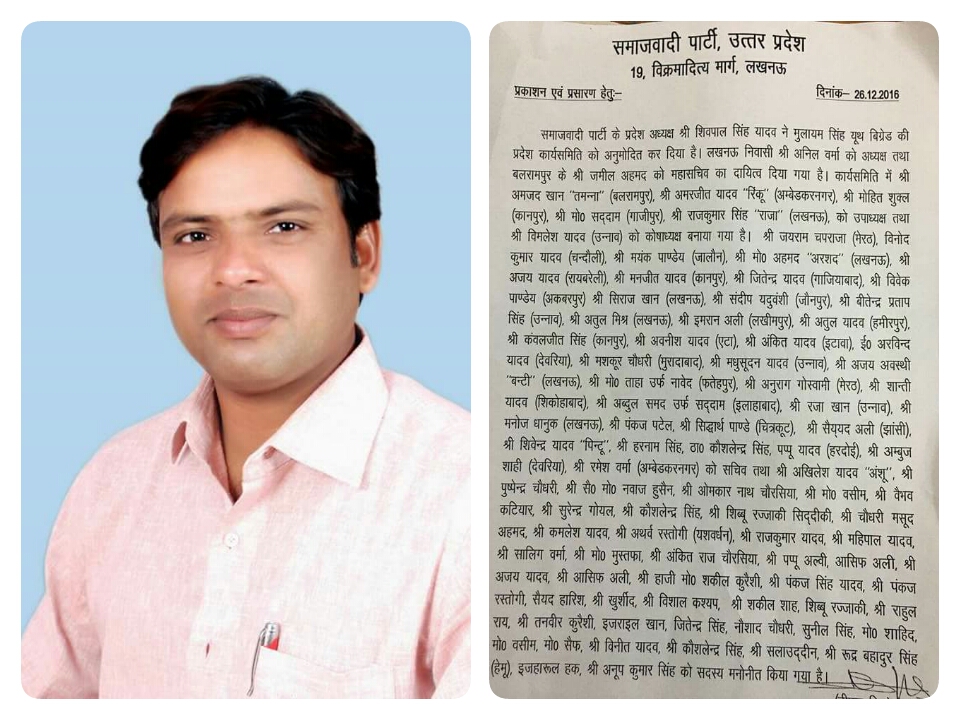 समाजवादी पार्टी, उत्तर प्रदेश
19, विक्रमादित्य मार्ग, लखनऊ
प्रकाशन एवं प्रसारण हेतुः– दिनांक– 26.12.2016
समाजवादी पार्टी के प्रदेश अध्यक्ष श्री शिवपाल सिंह यादव ने मुलायम सिंह यूथ बिग्रेड की
प्रदेश कार्यसमिति को अनुमोदित कर दिया है। लखनऊ निवासी श्री अनिल वर्मा को अध्यक्ष तथा
बलरामपुर के श्री जमील अहमद को महासचिव का दायित्व दिया गया है। कार्यसमिति में श्री
अमजद खान "तमन्ना" (बलरामपुर), श्री अमरजीत यादव "रिंकू" (अम्बेडकरनगर), श्री मोहित शुक्ल
(कानपुर), श्री मो0 सद्दाम (गाजीपुर), श्री राजकुमार सिंह "राजा" (लखनऊ), को उपाध्यक्ष तथा
श्री विमलेश यादव (उन्नाव) को कोषाध्यक्ष बनाया गया है। श्री जयराम चपराजा (मेरठ), विनोद
कुमार यादव (चन्दौली), श्री मयंक पाण्डेय (जालौन), श्री मो0 अहमद "अरशद" (लखनऊ), श्री
अजय यादव (रायबरेली), श्री मनजीत यादव (कानपुर), श्री जितेन्द्र यादव (गाजियाबाद), श्री विवेक
पाण्डेय (अकबरपुर) श्री सिराज खान (लखनऊ), श्री संदीप यदुवंशी (जौनपुर), श्री बीतेन्द्र प्रताप
सिंह (उन्नाव), श्री अतुल मिश्र (लखनऊ), श्री इमरान अली (लखीमपुर), श्री अतुल यादव (हमीरपुर),
श्री कंवलजीत सिंह (कानपुर), श्री अवनीश यादव (एटा), श्री अंकित यादव (इटावा), ई0 अरविन्द
यादव (देवरिया), श्री मशकूर चौधरी (मुरादाबाद), श्री मधुसूदन यादव (उन्नाव), श्री अजय अवस्थी
"बन्टी" (लखनऊ), श्री मो0 ताहा उर्फ नावेद (फतेहपुर), श्री अनुराग गोस्वामी (मेरठ), श्री शान्ती
यादव (शिकोहाबाद), श्री अब्दुल समद उर्फ सद्दाम (इलाहाबाद), श्री रजा खान (उन्नाव), श्री
मनोज धानुक (लखनऊ), श्री पंकज पटेल, श्री सिद्धार्थ पाण्डे (चित्रकूट), श्री सैय्यद अली (झांसी),
श्री शिवेन्द्र यादव "पिन्टू", श्री हरनाम सिंह, ठा0 कौशलेन्द्र सिंह, पप्पू यादव (हरदोई), श्री अम्बुज
शाही (देवरिया), श्री रमेश वर्मा (अम्बेडकरनगर) को सचिव तथा श्री अखिलेश यादव "अंशू", श्री
पुष्पेन्द्र चौधरी, श्री सै0 मो0 नवाज हुसैन, श्री ओमकार नाथ चौरसिया, श्री मो0 वसीम, श्री वैभव
कटियार, श्री सुरेन्द्र गोयल, श्री कौशलेन्द्र सिंह, श्री शिब्बू रज्जाकी सिद्दीकी, श्री चौधरी मसूद
अहमद, श्री कमलेश यादव, श्री अथर्व रस्तोगी (यशवर्धन), श्री राजकुमार यादव, श्री महिपाल यादव,
श्री सालिग वर्मा, श्री मो0 मुस्तफा, श्री अंकित राज चौरसिया, श्री पप्पू अल्वी, आसिफ अली, श्री
अजय यादव, श्री आसिफ अली, श्री हाजी मो0 शकील कुरैशी, श्री पंकज सिंह यादव, श्री पंकज
रस्तोगी, सैयद हारिश, श्री खुर्शीद, श्री विशाल कश्यप, श्री शकील शाह, शिब्बू रज्जाकी, श्री राहुल
राय, श्री तनवीर कुरैशी, इजराइल खान, जितेन्द्र सिंह, नौशाद चौधरी, सुनील सिंह, मो0 शाहिद,
मो0 वसीम, मो0 सैफ, श्री विनीत यादव, श्री कौशलेन्द्र सिंह, श्री सलाउद्दीन, श्री रूद्र बहादुर सिंह
(हेमू), इजहारूल हक, श्री अनूप कुमार सिंह को सदस्य मनोनीत किया गया है।